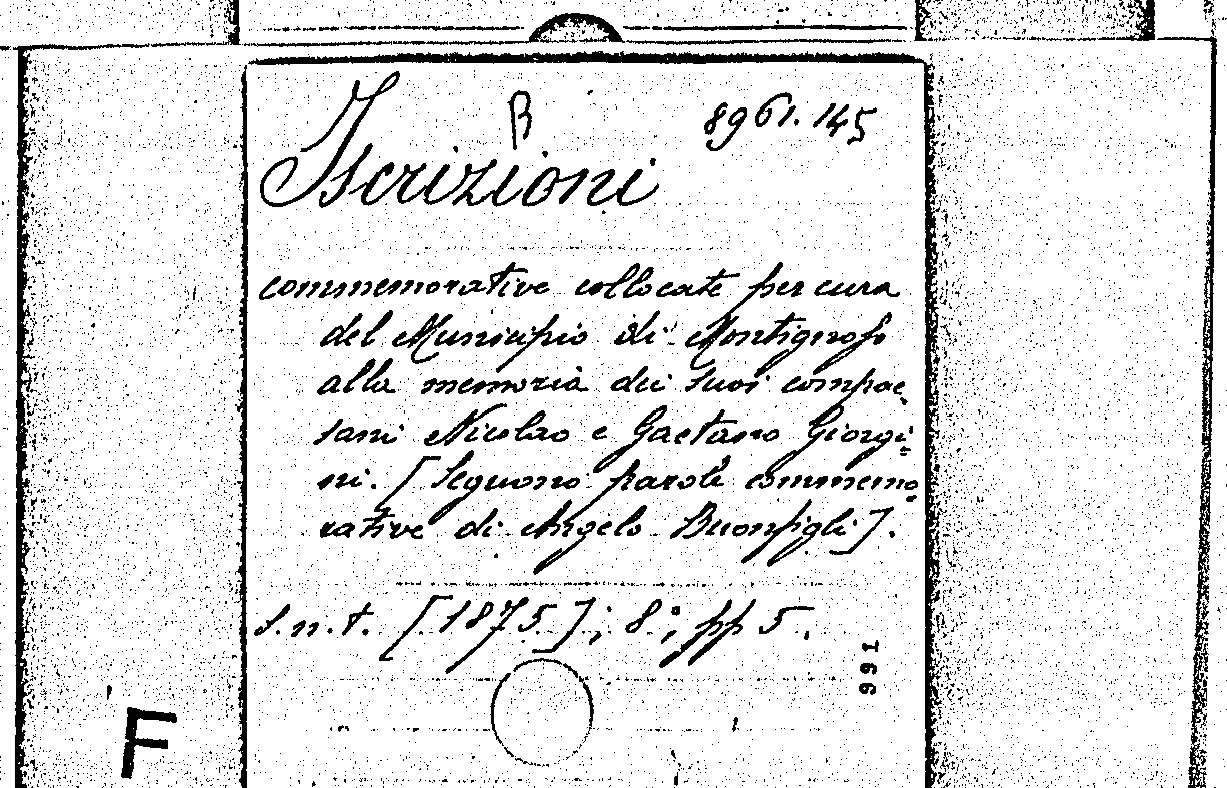 B 8961.145
Iscrizioni
commemorative collocate per cura
del Municipio di Montignoso
alla memoria dei suoi compae-
sani Nicolao e Gaetano Giorgi-
ni. [Seguono parole commemo-
rative di Angelo Buonfigli].
s.n.t. [1875]; 8°; pp 5.
991
F